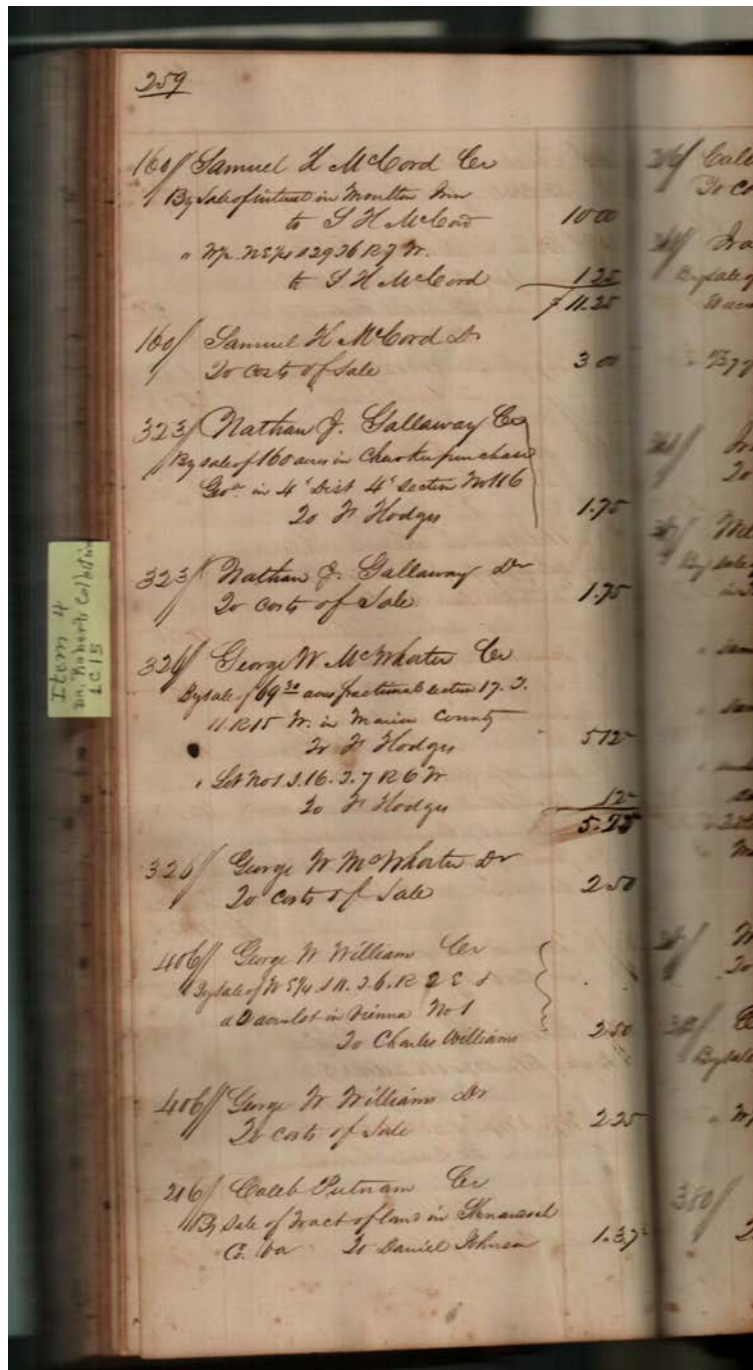 259
160 Samuel H McCord Cr
By Sale of interest in Moulton Inn
to S H McCord 10 00
" W½ N E¼ S 29 T6 R 7 W.
to S H McCord 1.25
$ 11.25
160 Samuel H McCord Dr
To costs of Sale 3 00
323 Nathan J. Gallaway Cr
By sale of 160 acres in Cherokee purchase
Geoa. in 4th Dist 4th Section No 116
To F Hodges 1.75
323 Nathan J. Gallaway Dr
To costs of Sale 1.75
326 George W McWhorter Cr
By sale of 69 30 acres fractional section 17. T.
11 R 15 W. in Marion County
To F Hodges 5 12
" Lot No 1 S. 16. T. 7 R 6 W
To F Hodges 12
5.25
326 George W McWhorter Dr
To costs of Sale 2 50
406 George W William Cr
By sale of W E¼ S 11. T. 6. R 2 E &
a acre lot in Vienna No 1
To Charles Williams 2 50
406 George W Williams Dr
To costs of Sale 2 25
216 Caleb Putnam Cr
By Sale of Tract of land in
Co. Va To Daniel Johnson 1.37
Item 4
Dr. Roberts Collection
LC15
Cale
To co
Ira
By sale of
To
By sale
To
By sale
380